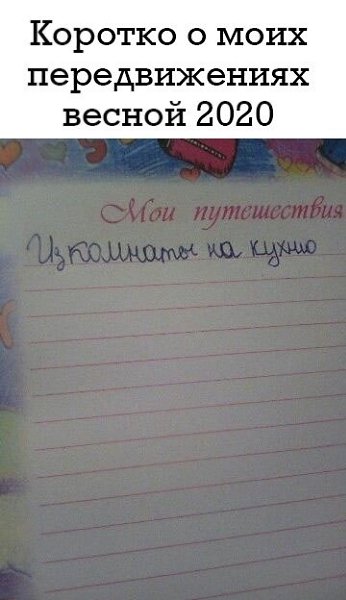 Коротко о моих
передвижениях
весной 2020
Мои путешествия
Из комнаты на кухню